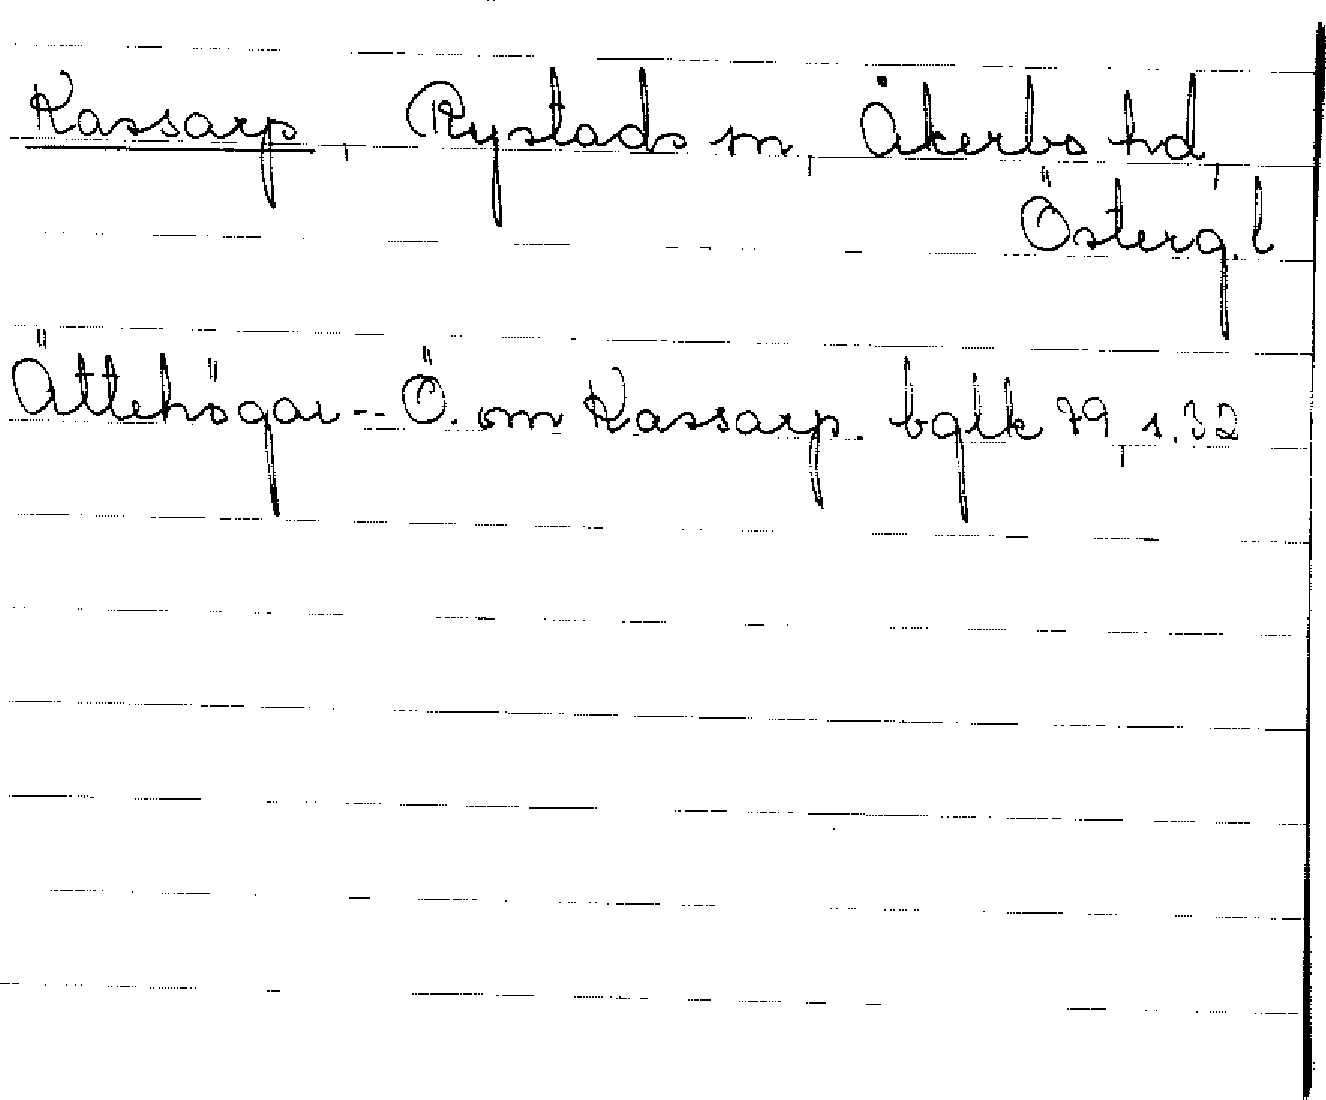 Kassarp, Rystads sn, Åkerbo hd,
Österg.l
Ättehögar -- Ö. om Kassarp. bglk 79, s.32